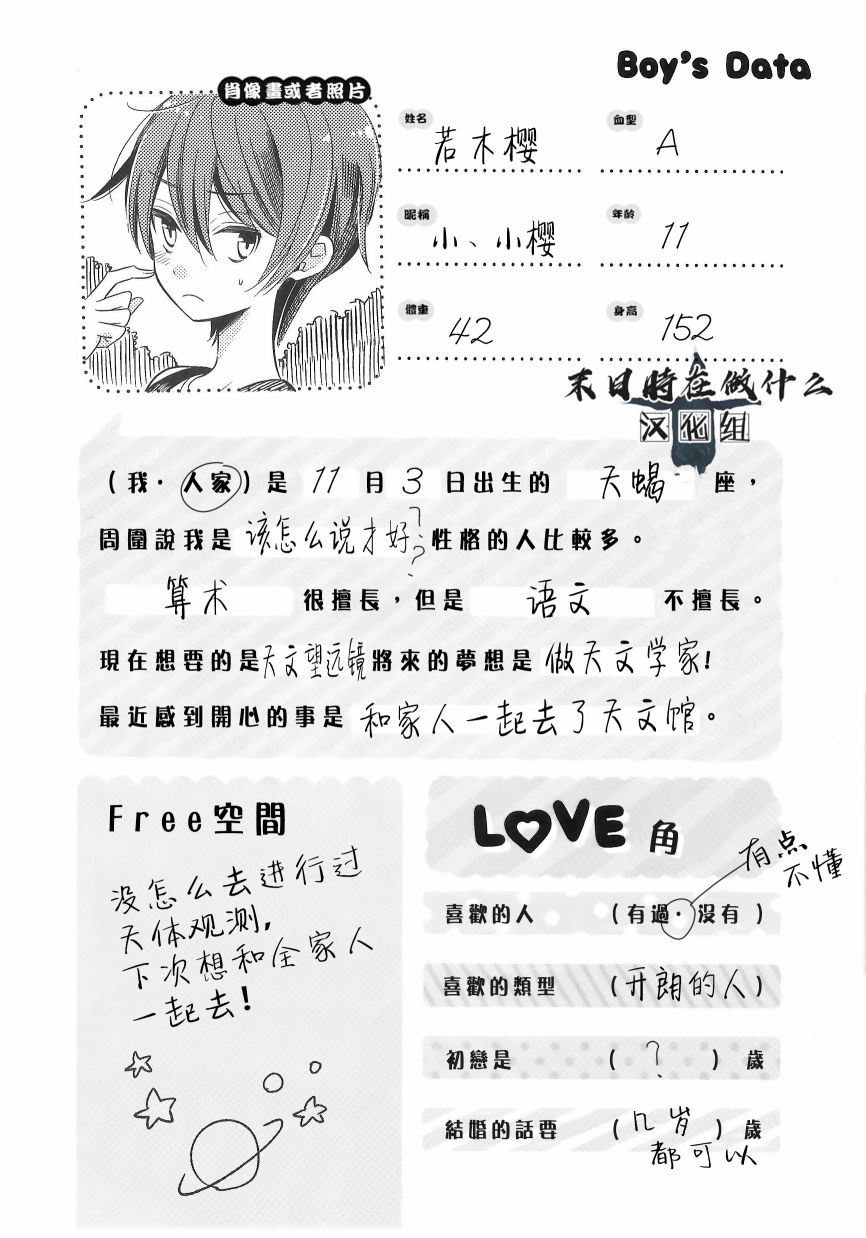 Boy's Data
肖像畫或者照片
姓名 若木樱
血型 A
昵稱 小、小樱
年龄 11
體重 42
身高 152
末日時在做什么
汉化组
(我·人家)是 11 月 3 日出生的 天蝎 座，
周圍說我是 该怎么说才好?? 性格的人比較多。
算术 很擅長，但是 语文 不擅長。
現在想要的是天文望远镜將來的夢想是 做天文学家!
最近感到開心的事是 和家人一起去了天文馆。
Free空間
没怎么去进行过
天体观测,
下次想和全家人
一起去!
LOVE 角
有点
不懂
喜歡的人 (有過·没有)
喜歡的類型 (开朗的人)
初戀是 (?) 歲
結婚的話要 (几岁) 歲
都可以